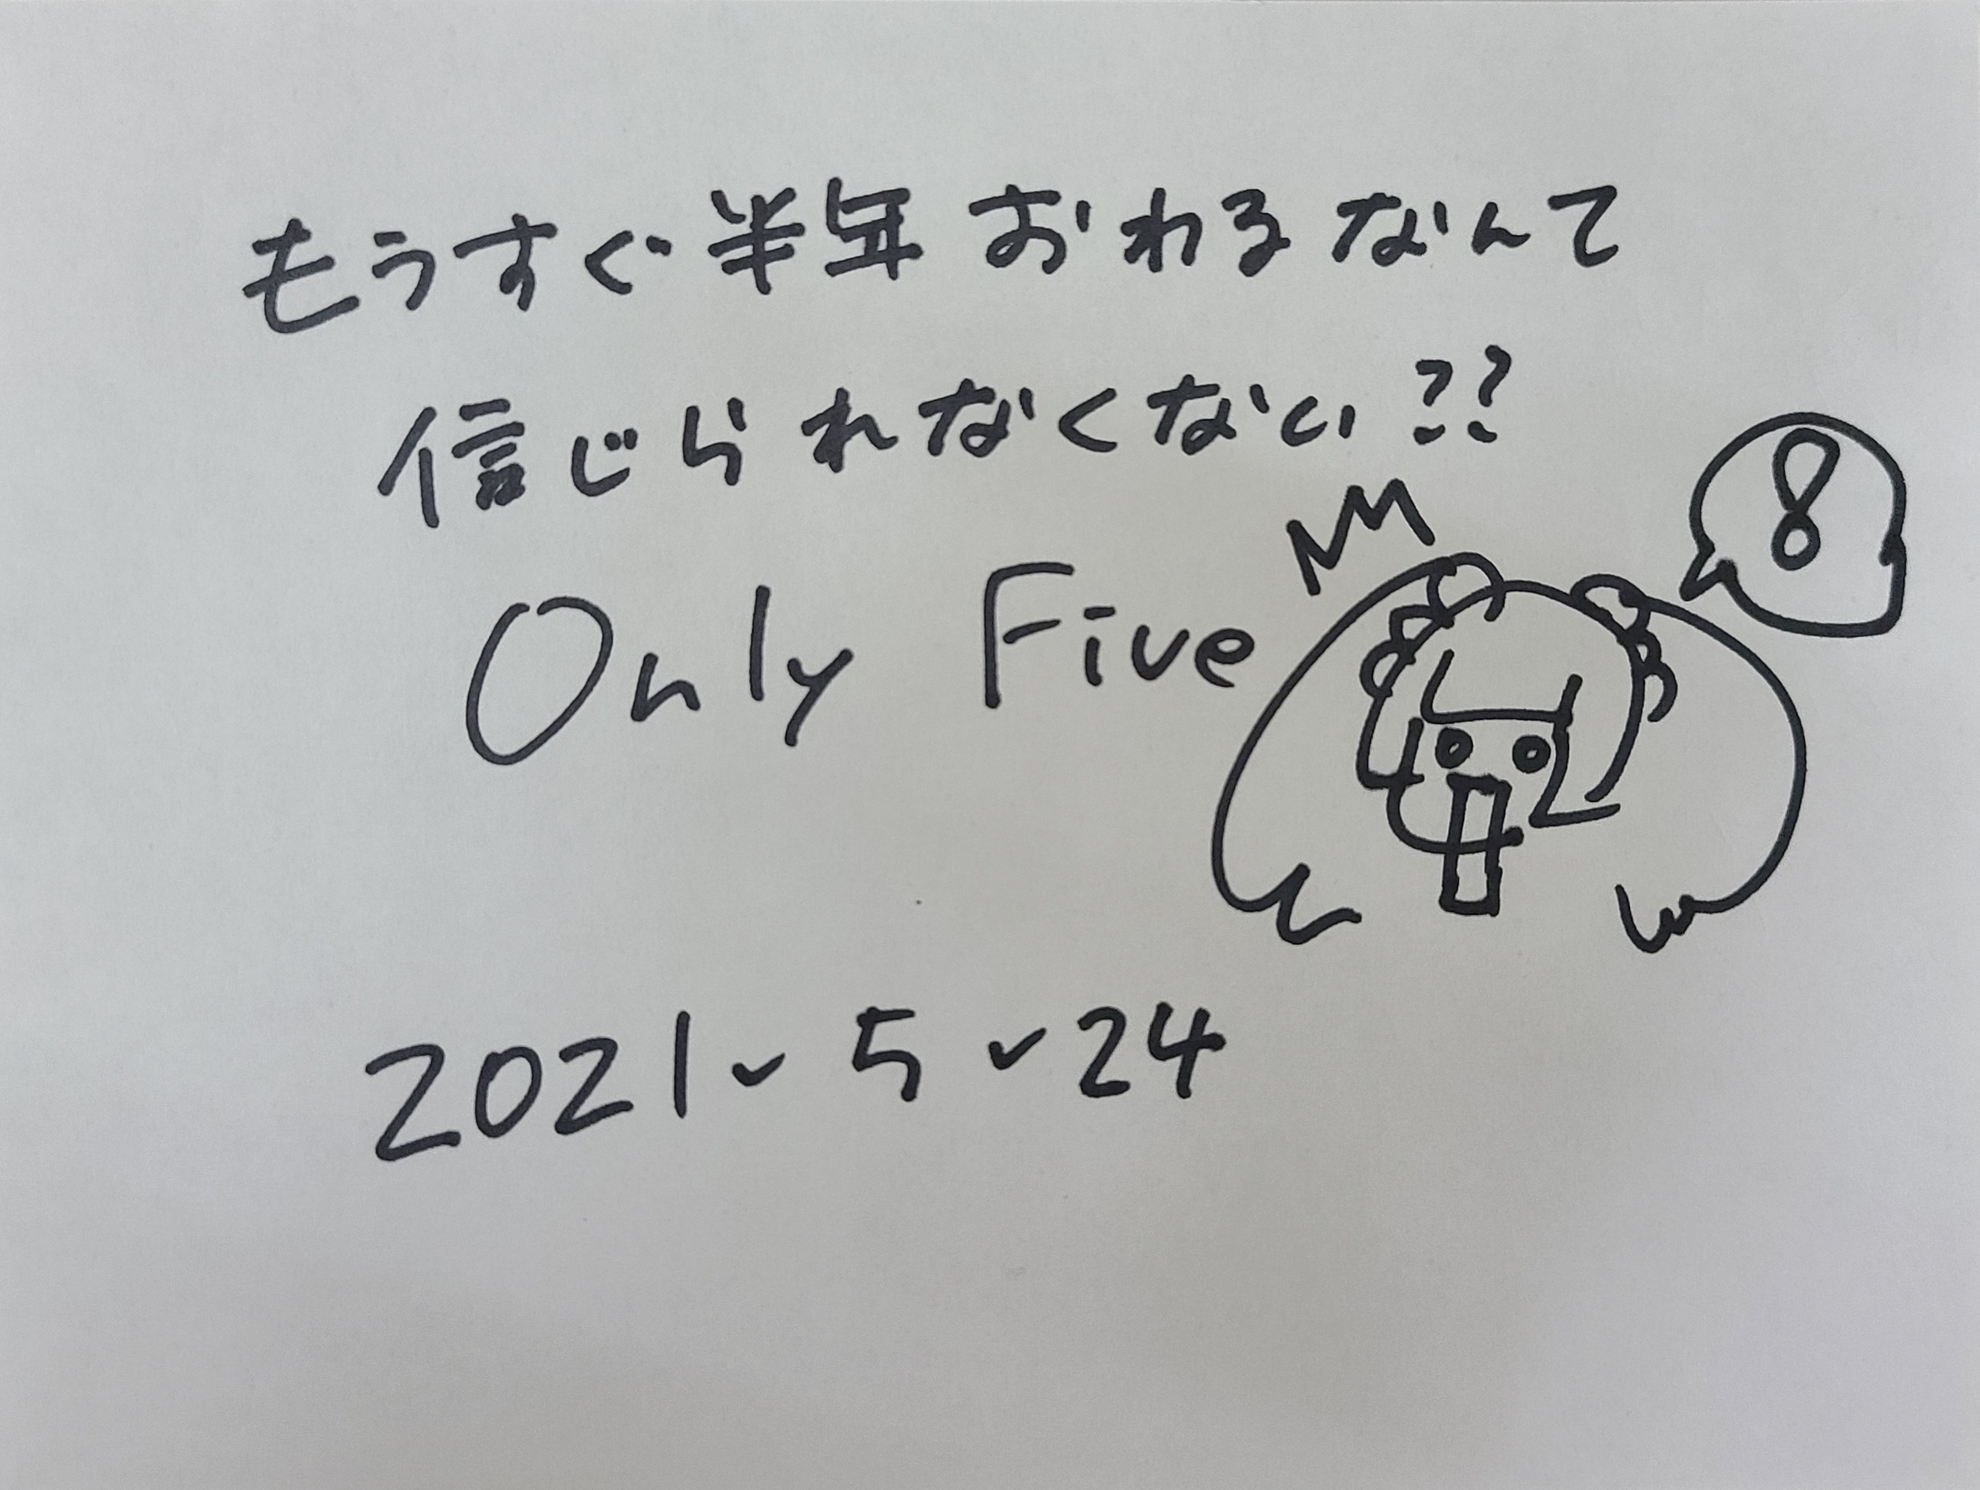 もうすぐ半年おわるなんて
信じられなくない??
Only Five
!
2021.5.24